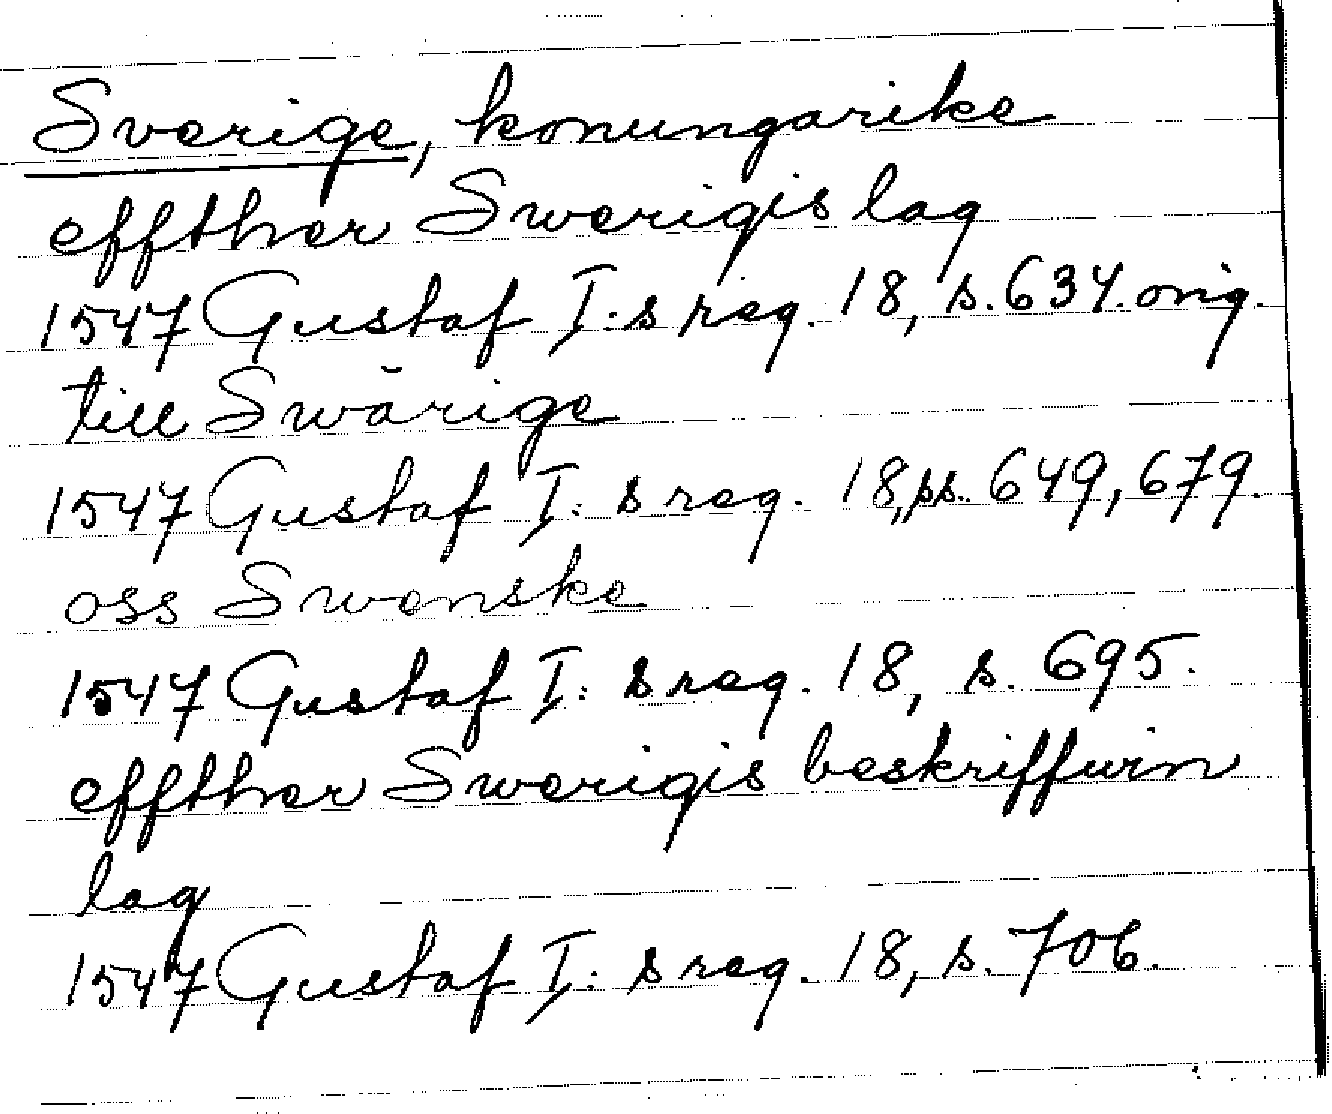 Sverige, konungarike
effther Swerigis lag
1547 Gustaf I:s reg. 18, s. 634. orig.
till Swärige
1547 Gustaf I:s reg. 18, ss. 649, 679.
oss Swenske
1547 Gustaf I:s reg. 18, s. 695.
effther Swerigis beskriffwin
lag
1547 Gustaf I:s reg. 18, s. 706.